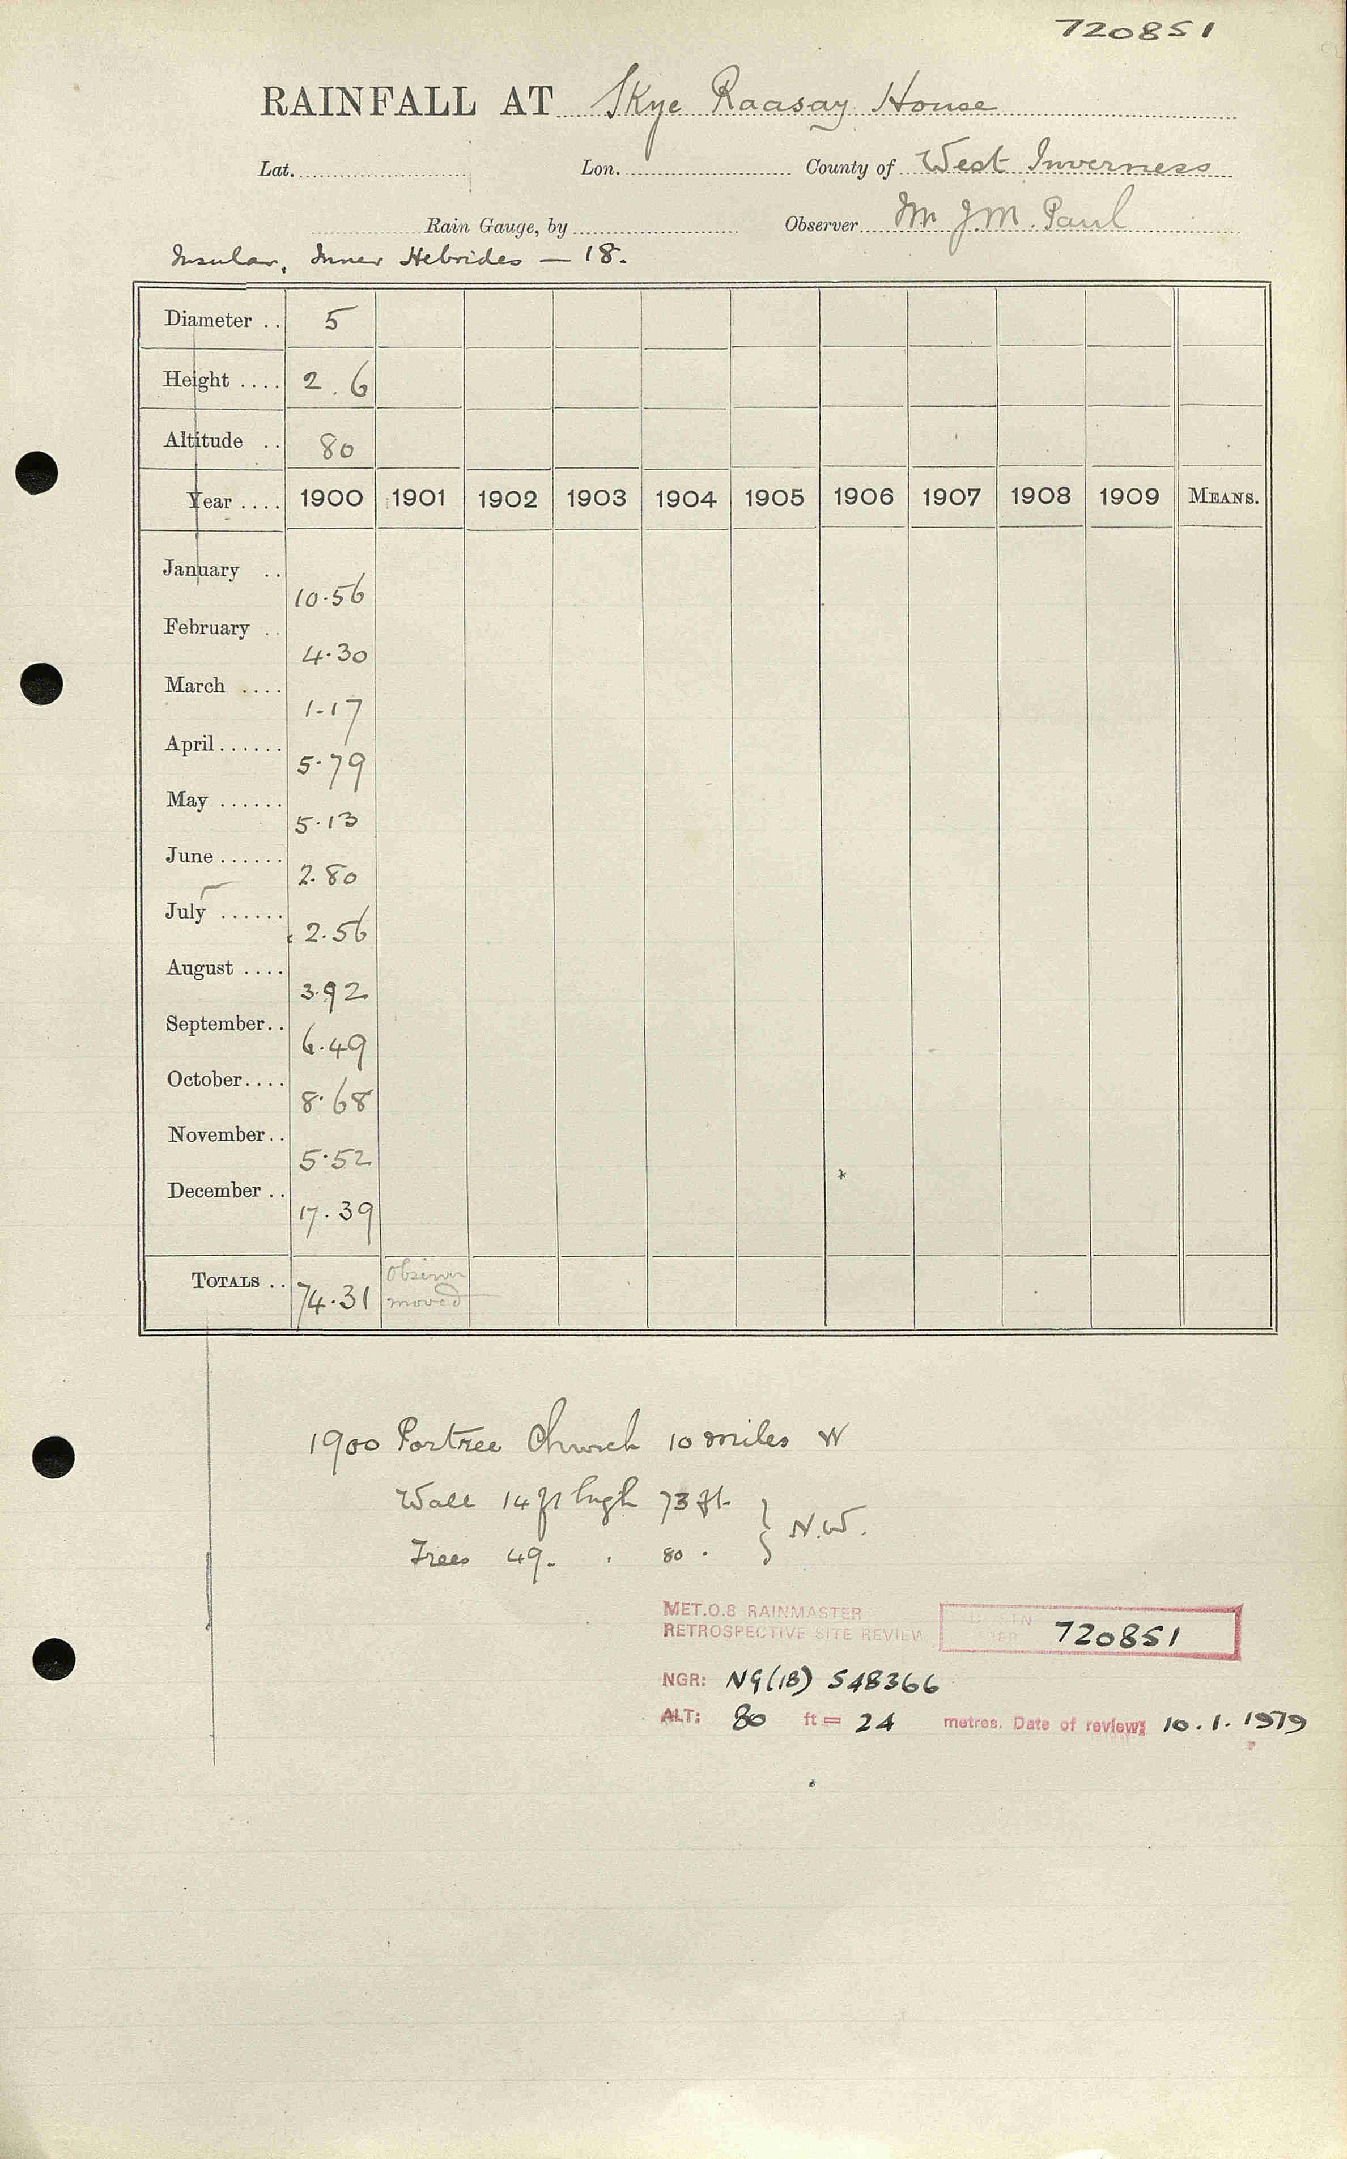 720851
RAINFALL AT Skye Raasay House
Lat. Lon. County of West Inverness
Rain Gauge, by Observer Mr J.M. Paul
Insular, Inner Hebrides — 18.
Diameter .. 5
Height .... 2.6
Altitude .. 80
Year .... 1900 1901 1902 1903 1904 1905 1906 1907 1908 1909 MEANS.
January .. 10.56
February .. 4.30
March .... 1.17
April ...... 5.79
May ...... 5.13
June ...... 2.80
July ...... 2.56
August .... 3.92
September.. 6.49
October.... 8.68
November.. 5.52
December .. 17.39
TOTALS .. 74.31 Observer
moved
1900 Portree Church 10 miles W
Wall 14 ft high 73 ft. } N.W.
Trees 49 . . 80 .
MET.O.8 RAINMASTER
RETROSPECTIVE SITE REVIEW 720851
NGR: NG(18) 548366
ALT: 80 ft = 24 metres. Date of review: 10.1.1979